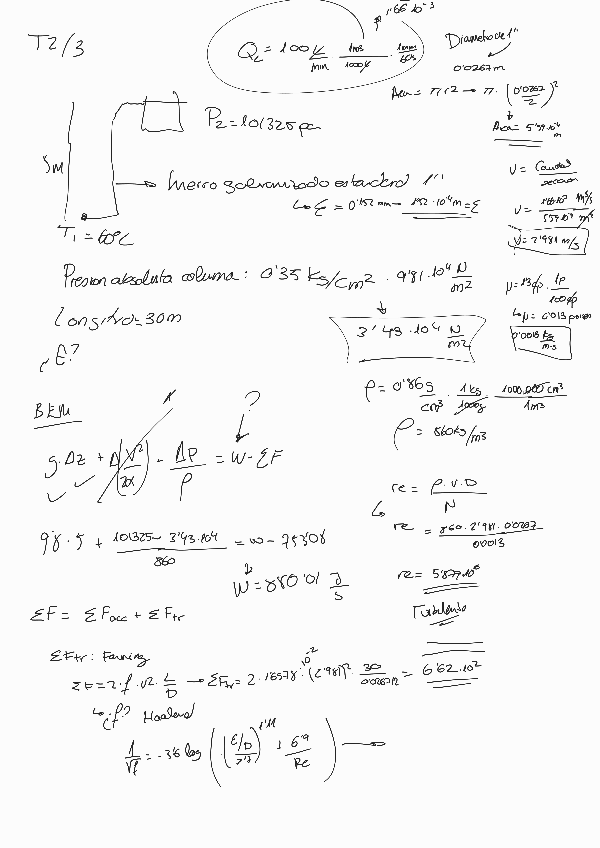 T2/3
Q_L = 100 l/min · 1m3/1000l · 1min/60s
1'66·10^-3
Diametro de 1"
0'0267m
Area = π r2 → π · (0'0267/2)^2
Area = 5'59·10^-4 m
P2 = 101325 pa
5m
→ hierro galvanizado estandard 1"
↳ Ɛ = 0'152 mm → 1'52·10^-4 m = Ɛ
T1 = 60ºC
V = Caudal/seccion
V = 1'66·10^-3 m3/s / 5'59·10^-4 m2
V = 2'981 m/s
Presion absoluta columna: 0'35 kg/cm2 · 9'81·10^4 N/m2
3'43·10^4 N/m2
μ = 1'3cp · 1p/100cp
↳ μ = 0'013 poises
0'0013 kg/m·s
Longitud = 30m
¿E?
ρ = 0'86 g/cm3 · 1kg/1000g · 1000.000cm3/1m3
ρ = 860 kg/m3
BEM
?
g·Δz + Δ(V2/2α) - Δp/ρ = W - ΣF
re = ρ·v·D/N
re = 860·2'981·0'0267/0'0013
re = 5'877·10^6
Turbulento
9'8·5 + 101325 - 3'43·10^4/860 = W - 753'08
W = 880'01 J/s
ΣF = ΣFacc + ΣFtr
ΣFtr: Fanning
ΣF = 2·f·v2·L/D → ΣFtr = 2·1'6578·10^-2·(2'981)^2·30/0'0267 = 6'62·10^2
↳ ¿f? Haaland
1/√f = -3'6 log ((Ɛ/D/3'7)^1'11 + 6'9/Re) →